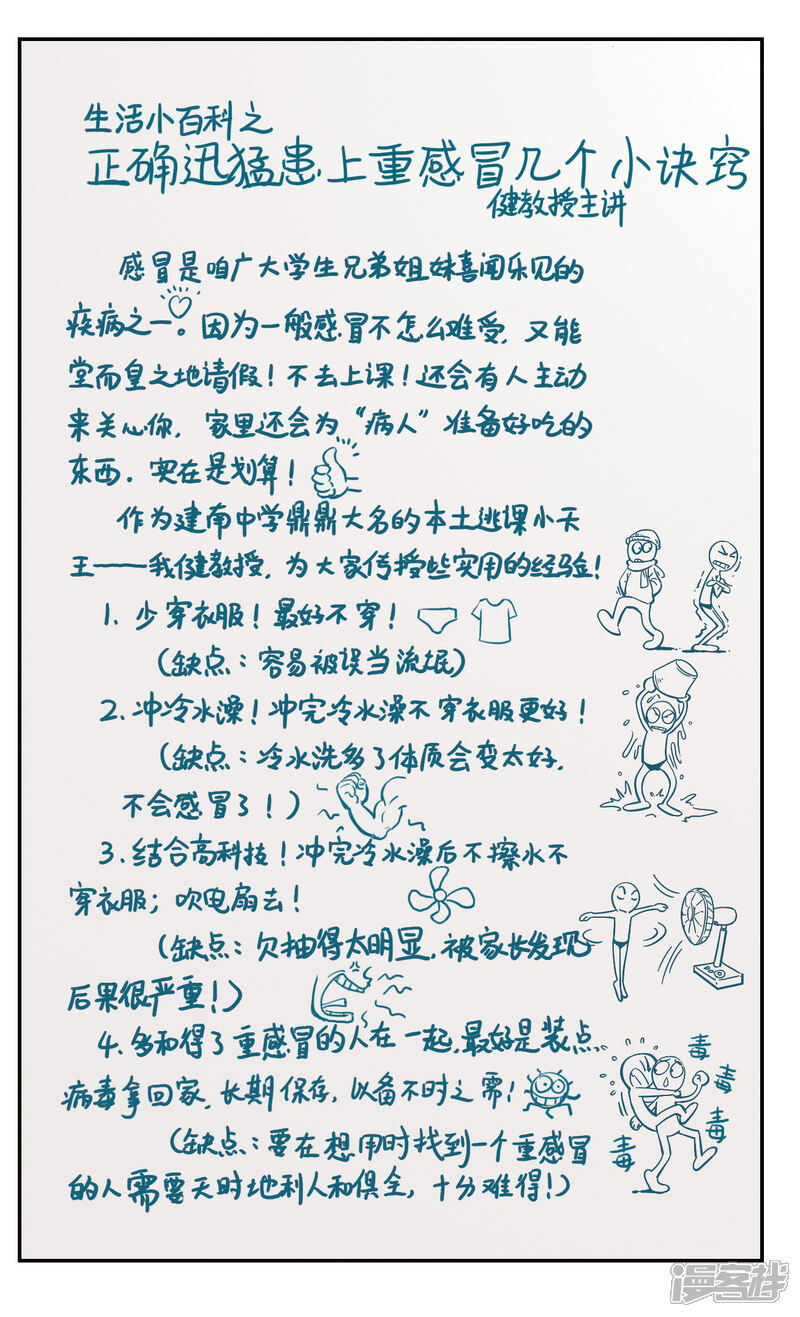 生活小百科之
正确迅猛患上重感冒几个小诀窍
健教授主讲
感冒是咱广大学生兄弟姐妹喜闻乐见的
疾病之一。因为一般感冒不怎么难受，又能
堂而皇之地请假！不去上课！还会有人主动
来关心你，家里还会为“病人”准备好吃的
东西．实在是划算！
作为建南中学鼎鼎大名的本土逃课小天
王——我健教授，为大家传授些实用的经验！
1．少穿衣服！最好不穿！
（缺点：容易被误当流氓）
2．冲冷水澡！冲完冷水澡不穿衣服更好！
（缺点：冷水洗多了体质会变太好．
不会感冒了！）
3．结合高科技！冲完冷水澡后不擦水不
穿衣服；吹电扇去！
（缺点：欠抽得太明显，被家长发现
后果很严重！）
4．多和得了重感冒的人在一起，最好是装点
病毒拿回家，长期保存，以备不时之需！
（缺点：要在想用时找到一个重感冒
的人需要天时地利人和俱全，十分难得！）
毒
毒
毒
毒
漫客栈